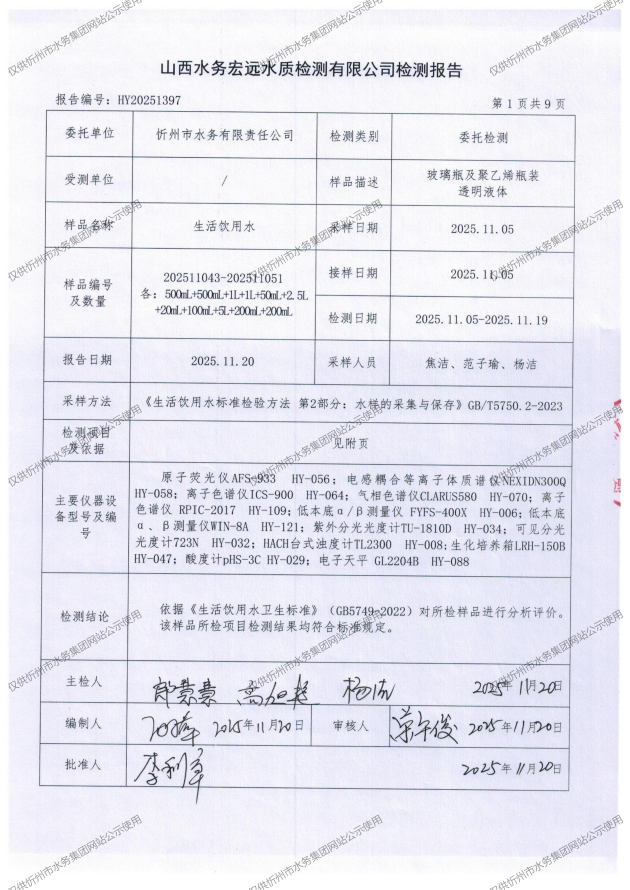 山西水务宏远水质检测有限公司检测报告
报告编号：HY20251397
第 1 页 共 9 页
委托单位 忻州市水务有限责任公司 检测类别 委托检测
受测单位 / 样品描述 玻璃瓶及聚乙烯瓶装
透明液体
样品名称 生活饮用水 采样日期 2025.11.05
样品编号
及数量
202511043-202511051
各：500mL+500mL+1L+1L+50mL+2.5L
+20mL+100mL+5L+200mL+200mL
接样日期 2025.11.05
检测日期 2025.11.05-2025.11.19
报告日期 2025.11.20 采样人员 焦洁、范子瑜、杨洁
采样方法 《生活饮用水标准检验方法 第2部分：水样的采集与保存》GB/T5750.2-2023
检测项目
及依据
见附页
主要仪器设
备型号及编
号
原子荧光仪AFS-933 HY-056；电感耦合等离子体质谱仪NEXIDN300Q
HY-058；离子色谱仪ICS-900 HY-064；气相色谱仪CLARUS580 HY-070；离子
色谱仪 RPIC-2017 HY-109；低本底α/β测量仪 FYFS-400X HY-006；低本底
α、β测量仪WIN-8A HY-121；紫外分光光度计TU-1810D HY-034；可见分光
光度计723N HY-032；HACH台式浊度计TL2300 HY-008；生化培养箱LRH-150B
HY-047；酸度计pHS-3C HY-029；电子天平 GL2204B HY-088
检测结论
依据《生活饮用水卫生标准》（GB5749-2022）对所检样品进行分析评价。
该样品所检项目检测结果均符合标准规定。
主检人 杨洁 2025年11月20日
编制人 2025年11月20日 审核人 2025年11月20日
批准人 2025年11月20日
仅供忻州市水务集团网站公示使用